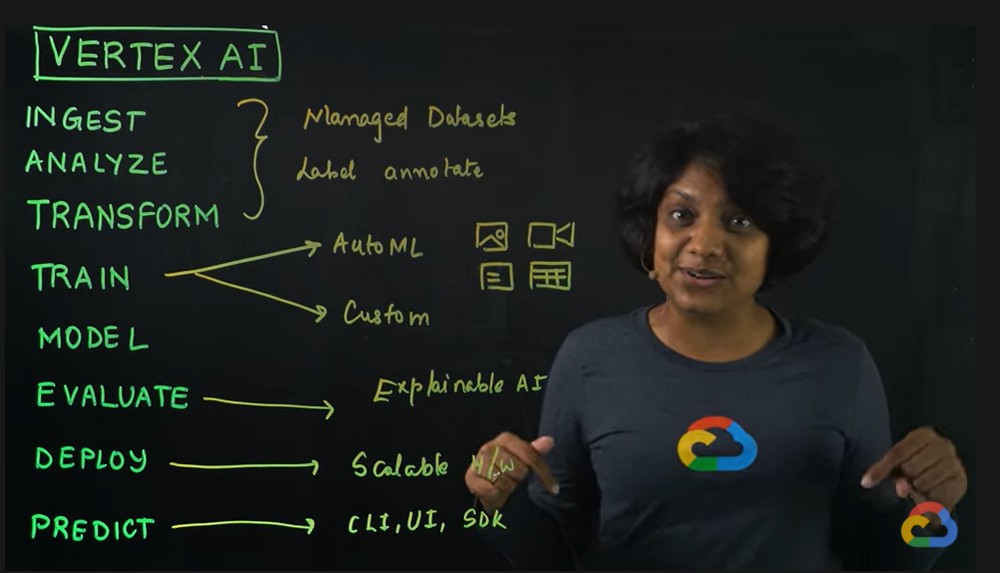 VERTEX AI
INGEST
ANALYZE
TRANSFORM
Managed Datasets
Label annotate
TRAIN
AutoML
Custom
MODEL
EVALUATE
Explainable AI
DEPLOY
Scalable H/W
PREDICT
CLI, UI, SDK